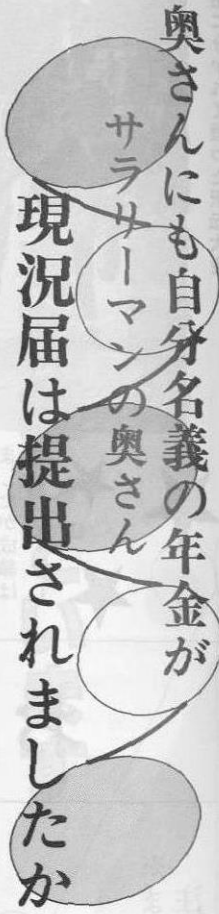 奥さんにも自分名義の年金が
サラリーマンの奥さん
現況届は提出されましたか